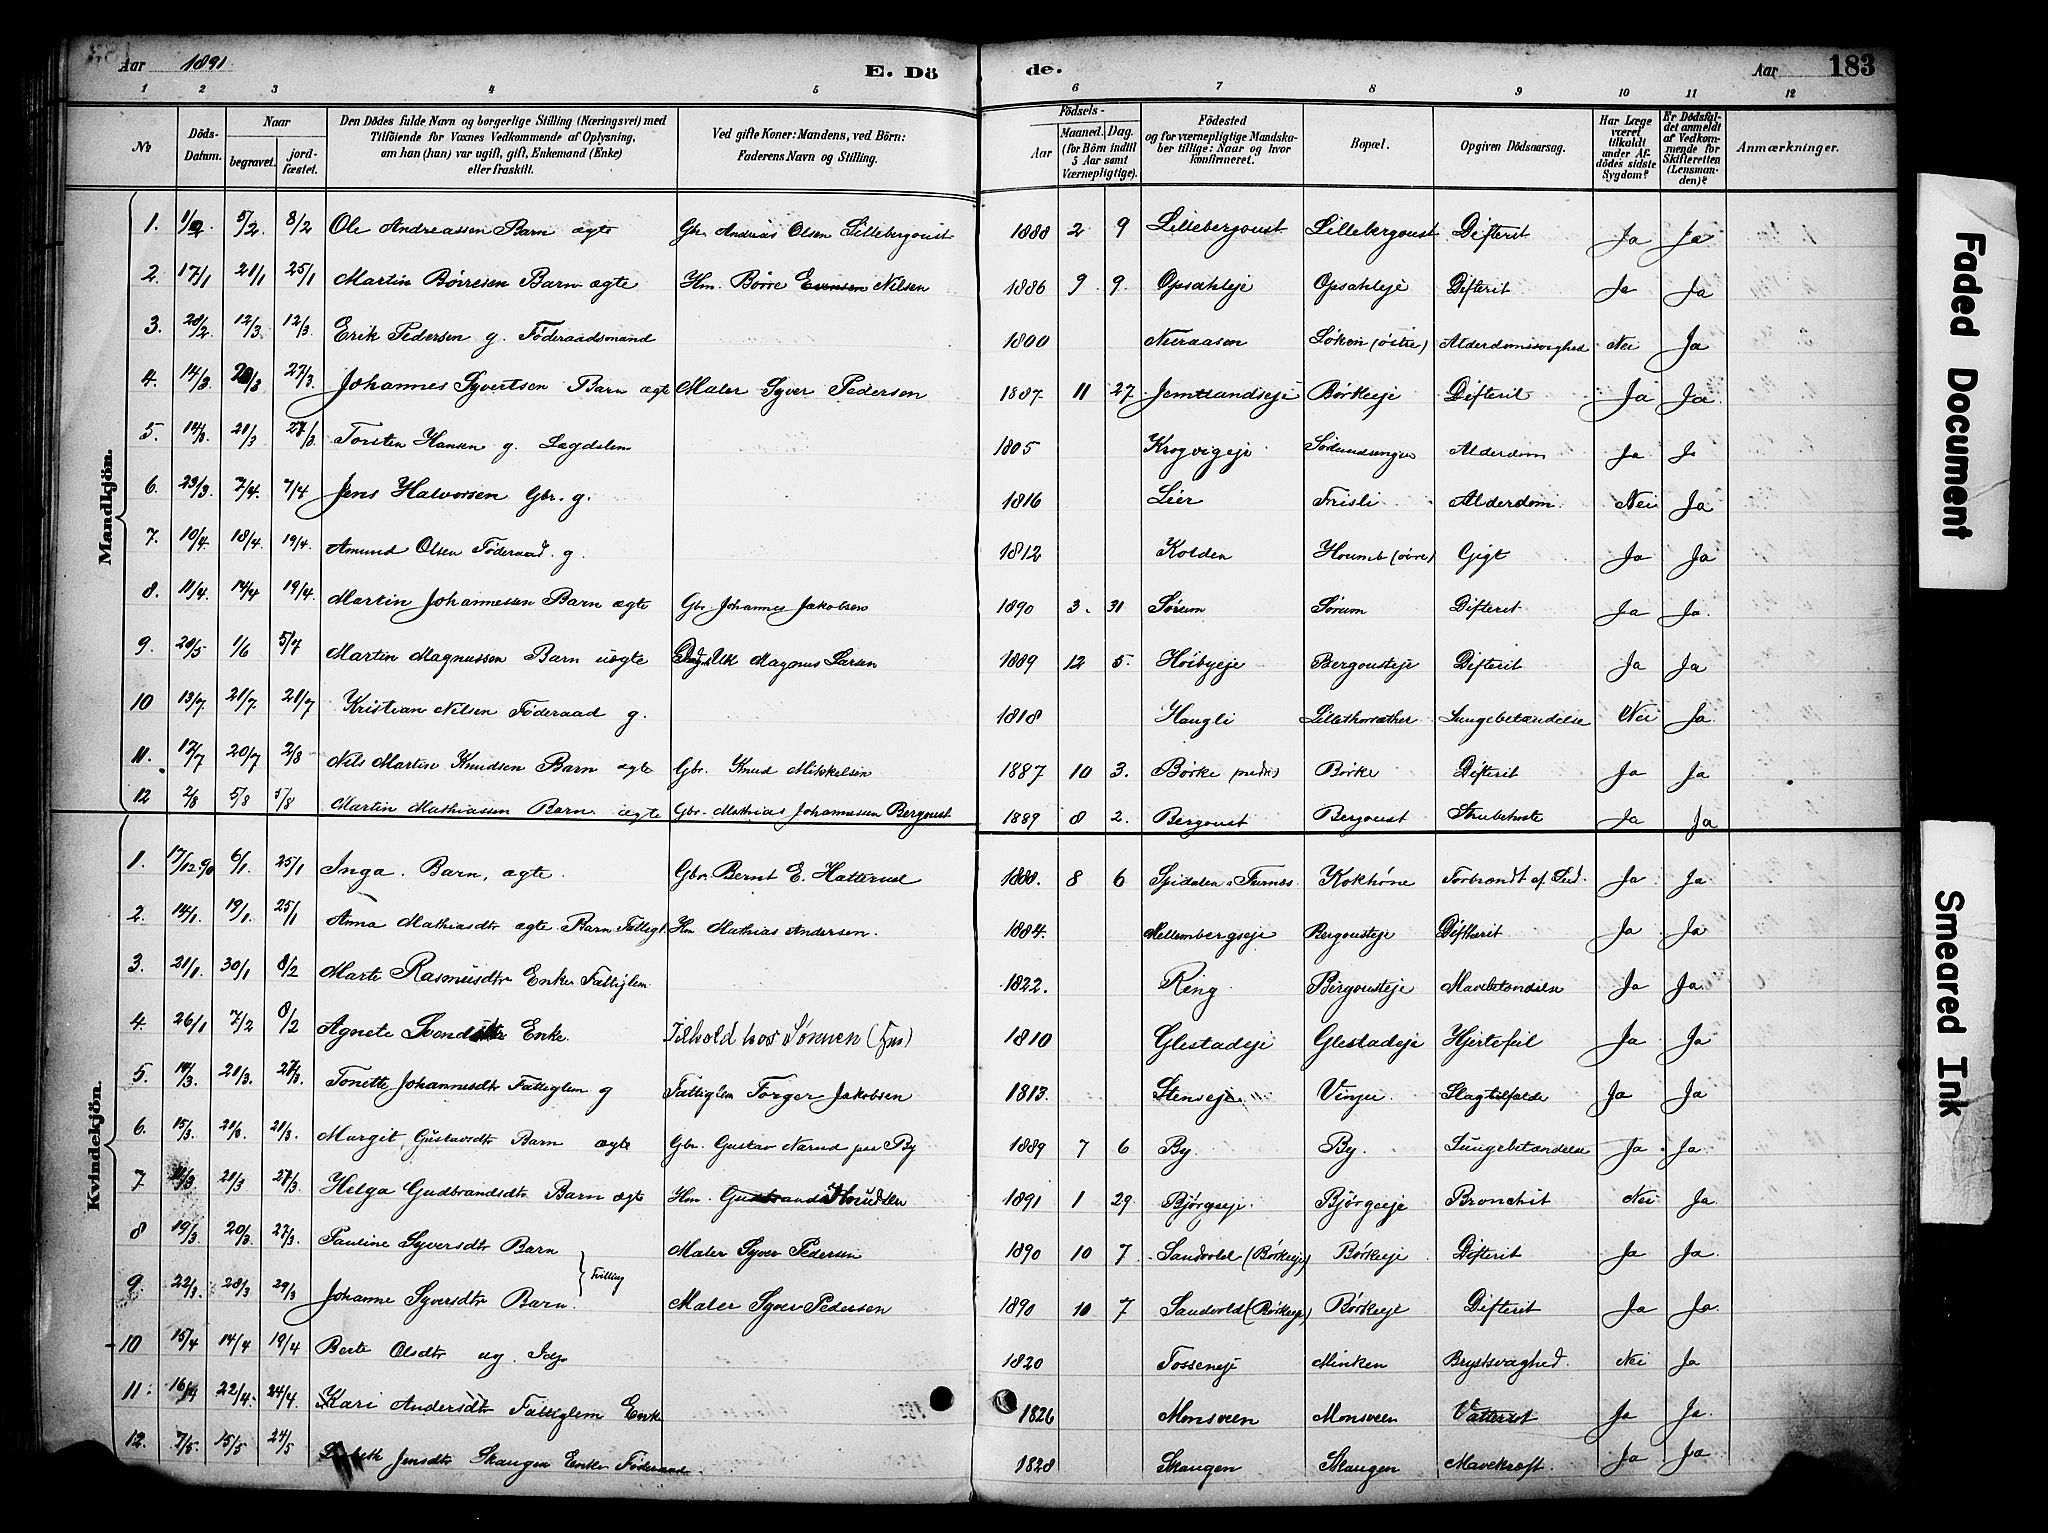 Aar 1891. E. Döde. Aar 183
1 2 3 4 5 6 7 8 9 10 11 12
No
Döds-Datum.
Naar
begravet.
jordfæstet.
Den Dödes fulde Navn og borgerlige Stilling (Næringsvei) med
Tilföiende for Voxnes Vedkommende af Oplysning,
om han (hun) var ugift, gift, Enkemand (Enke)
eller fraskilt.
Ved gifte Koner: Mandens, ved Börn:
Faderens Navn og Stilling.
Födsels-
Aar
Maaned. Dag.
(for Börn indtil
5 Aar samt
Værnepligtige).
Födested
og for værnepligtige Mandskaber
tillige: Naar og hvor
konfirmeret.
Bopæl.
Opgiven Dödsaarsag.
Har Læge
været
tilkaldt
under Afdödes
sidste
Sygdom?
Er Dödsfaldet
anmeldt
af Vedkommende
for
Skifteretten
(Lensmanden)?
Anmærkninger.
Mandkjön.
1. 1/2. 5/2. 8/2 Ole Andreassen Barn ægte Gbr. Andreas Olsen Lillebergoust 1888 2 9 Lillebergoust Lillebergoust Difterit Ja Ja
2. 17/1 21/1 25/1 Martin Börresen Barn ægte Hm. Börre Evensen Nilsen 1886 9 9. Opsahleje Opsahleje Difterit Ja Ja
3. 28/2 12/3 12/3 Erik Pedersen g. Föderaadsmand 1800 Neiraasen Löken (östre) Alderdomssvaghed Nei Ja
4. 14/3 20/3 27/3. Johannes Syvertsen Barn ægte Maler Syver Pedersen 1887 11 27 Jemtlandseje Börkeeje Difterit Ja Ja
5. 14/3 21/3 27/3 Torsten Hansen g. Lægdslem 1805 Krogvigeje Alderdom Ja Ja
6. 23/3. 7/4. 7/4 Jens Halvorsen Gbr. g. 1816 Lier Frisli Alderdom Nei Ja
7. 10/4. 18/4. 19/4. Amund Olsen Föderaad g. 1812 Kolden Houmb (övre) Gigt Ja Ja
8. 11/4. 14/4 19/4. Martin Johannessen Barn ægte Gbr. Johannes Jakobsen 1890 3. 31 Sörum Sörum Difterit Ja Ja
9. 20/5 1/6 5/7 Martin Magnussen Barn uægte Magnus Larsen 1889 12 5. Höibyeje Bergousteje Difterit Ja Ja
10 13/7 21/7. 21/7 Kristian Nilsen Föderaad g. 1818 Haugli Lillethorsæther Lungebetændelse Nei Ja
11. 17/7 20/7 2/8 Nils Martin Knudsen Barn ægte Gbr. Knud Mikkelsen 1887 10 3. Börke (nedre) Börke Difterit Ja Ja
12 2/8 5/8 5/8 Martin Mathiassen Barn ægte Gbr. Mathias Johannessen Bergoust 1889 8 2. Bergoust Bergoust Strubehoste Ja Ja
Kvindekjön.
1. 17/12 90 6/1 25/1 Inga. Barn, ægte. Gbr. Bernt E. Hatterud 1888. 8 6 Spidalen i Furnæs Kokhöne Forbrændt af Ild. Ja Ja
2. 14/1. 19/1. 25/1 Anna Mathiasdtr ægte Barn Fattigl. Hm Mathias Andersen. 1884. Mellembergseje Bergousteje Difterit Ja Ja
3. 21/1 30/1 8/2 Marte Rasmusdtr Enke Fattiglem 1822. Ring Bergousteje Mavebetændelse Ja Ja
4. 26/1 7/2 8/2 Agnete Svendsdtr Enke. Tilhold hos Sönnen 1810 Glestadeje Glestadeje Hjertefeil Ja Ja
5. 14/3. 21/3. 27/3. Tonette Johannesdtr Fattiglem g Fattiglem Torger Jakobsen 1813. Stenseje Vinger Slagtilfælde Ja Ja
6. 15/3. 21/3. 21/3. Margit Gustavsdtr Barn ægte Gbr. Gustav Narud paa By 1889 7 6 By By Lungebetændelse Ja Ja
7. 21/3 27/3. Helga Gudbrandsdtr Barn ægte Hm. Gudbrand 1891 1 29. Bjørgeeje Bjørgeeje Bronchit Nei Ja
8 19/3 20/3 27/3. Pauline Syversdtr Barn Maler Syver Pedersen 1890 10 7 Sandvold (Börkeeje) Börkeeje Difterit Ja Ja
} Tvilling
9. 22/3. 28/3 29/3 Johanne Syversdtr Barn. Maler Syver Pedersen 1890 10 7 Sandvold (Börkeeje) Börkeeje Difterit Ja Ja
10 15/4 14/4 19/4 Berte Olsdtr ug. Inds. 1820 Fosseneje Minken Brystsvaghed. Nei Ja
11. 16/4 22/4. 24/4. Kari Andersdtr Fattiglem Enke 1826 Monsveen Monsveen Vattersot Ja Ja
12. 7/5. 15/5 24/5 Jensdtr Skaugen Enke Föderaad 1828 Skaugen Skaugen Mavekræft. Ja Ja
Faded Document
Smeared Ink